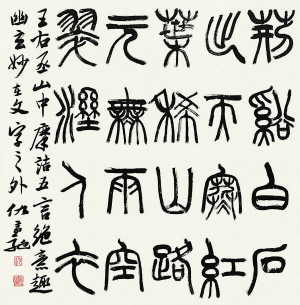 荊谿白石
出天寒紅
葉稀山路
元無雨空
翠溼人衣
王右丞山中摩詰五言絕意趣
幽玄妙在文字之外